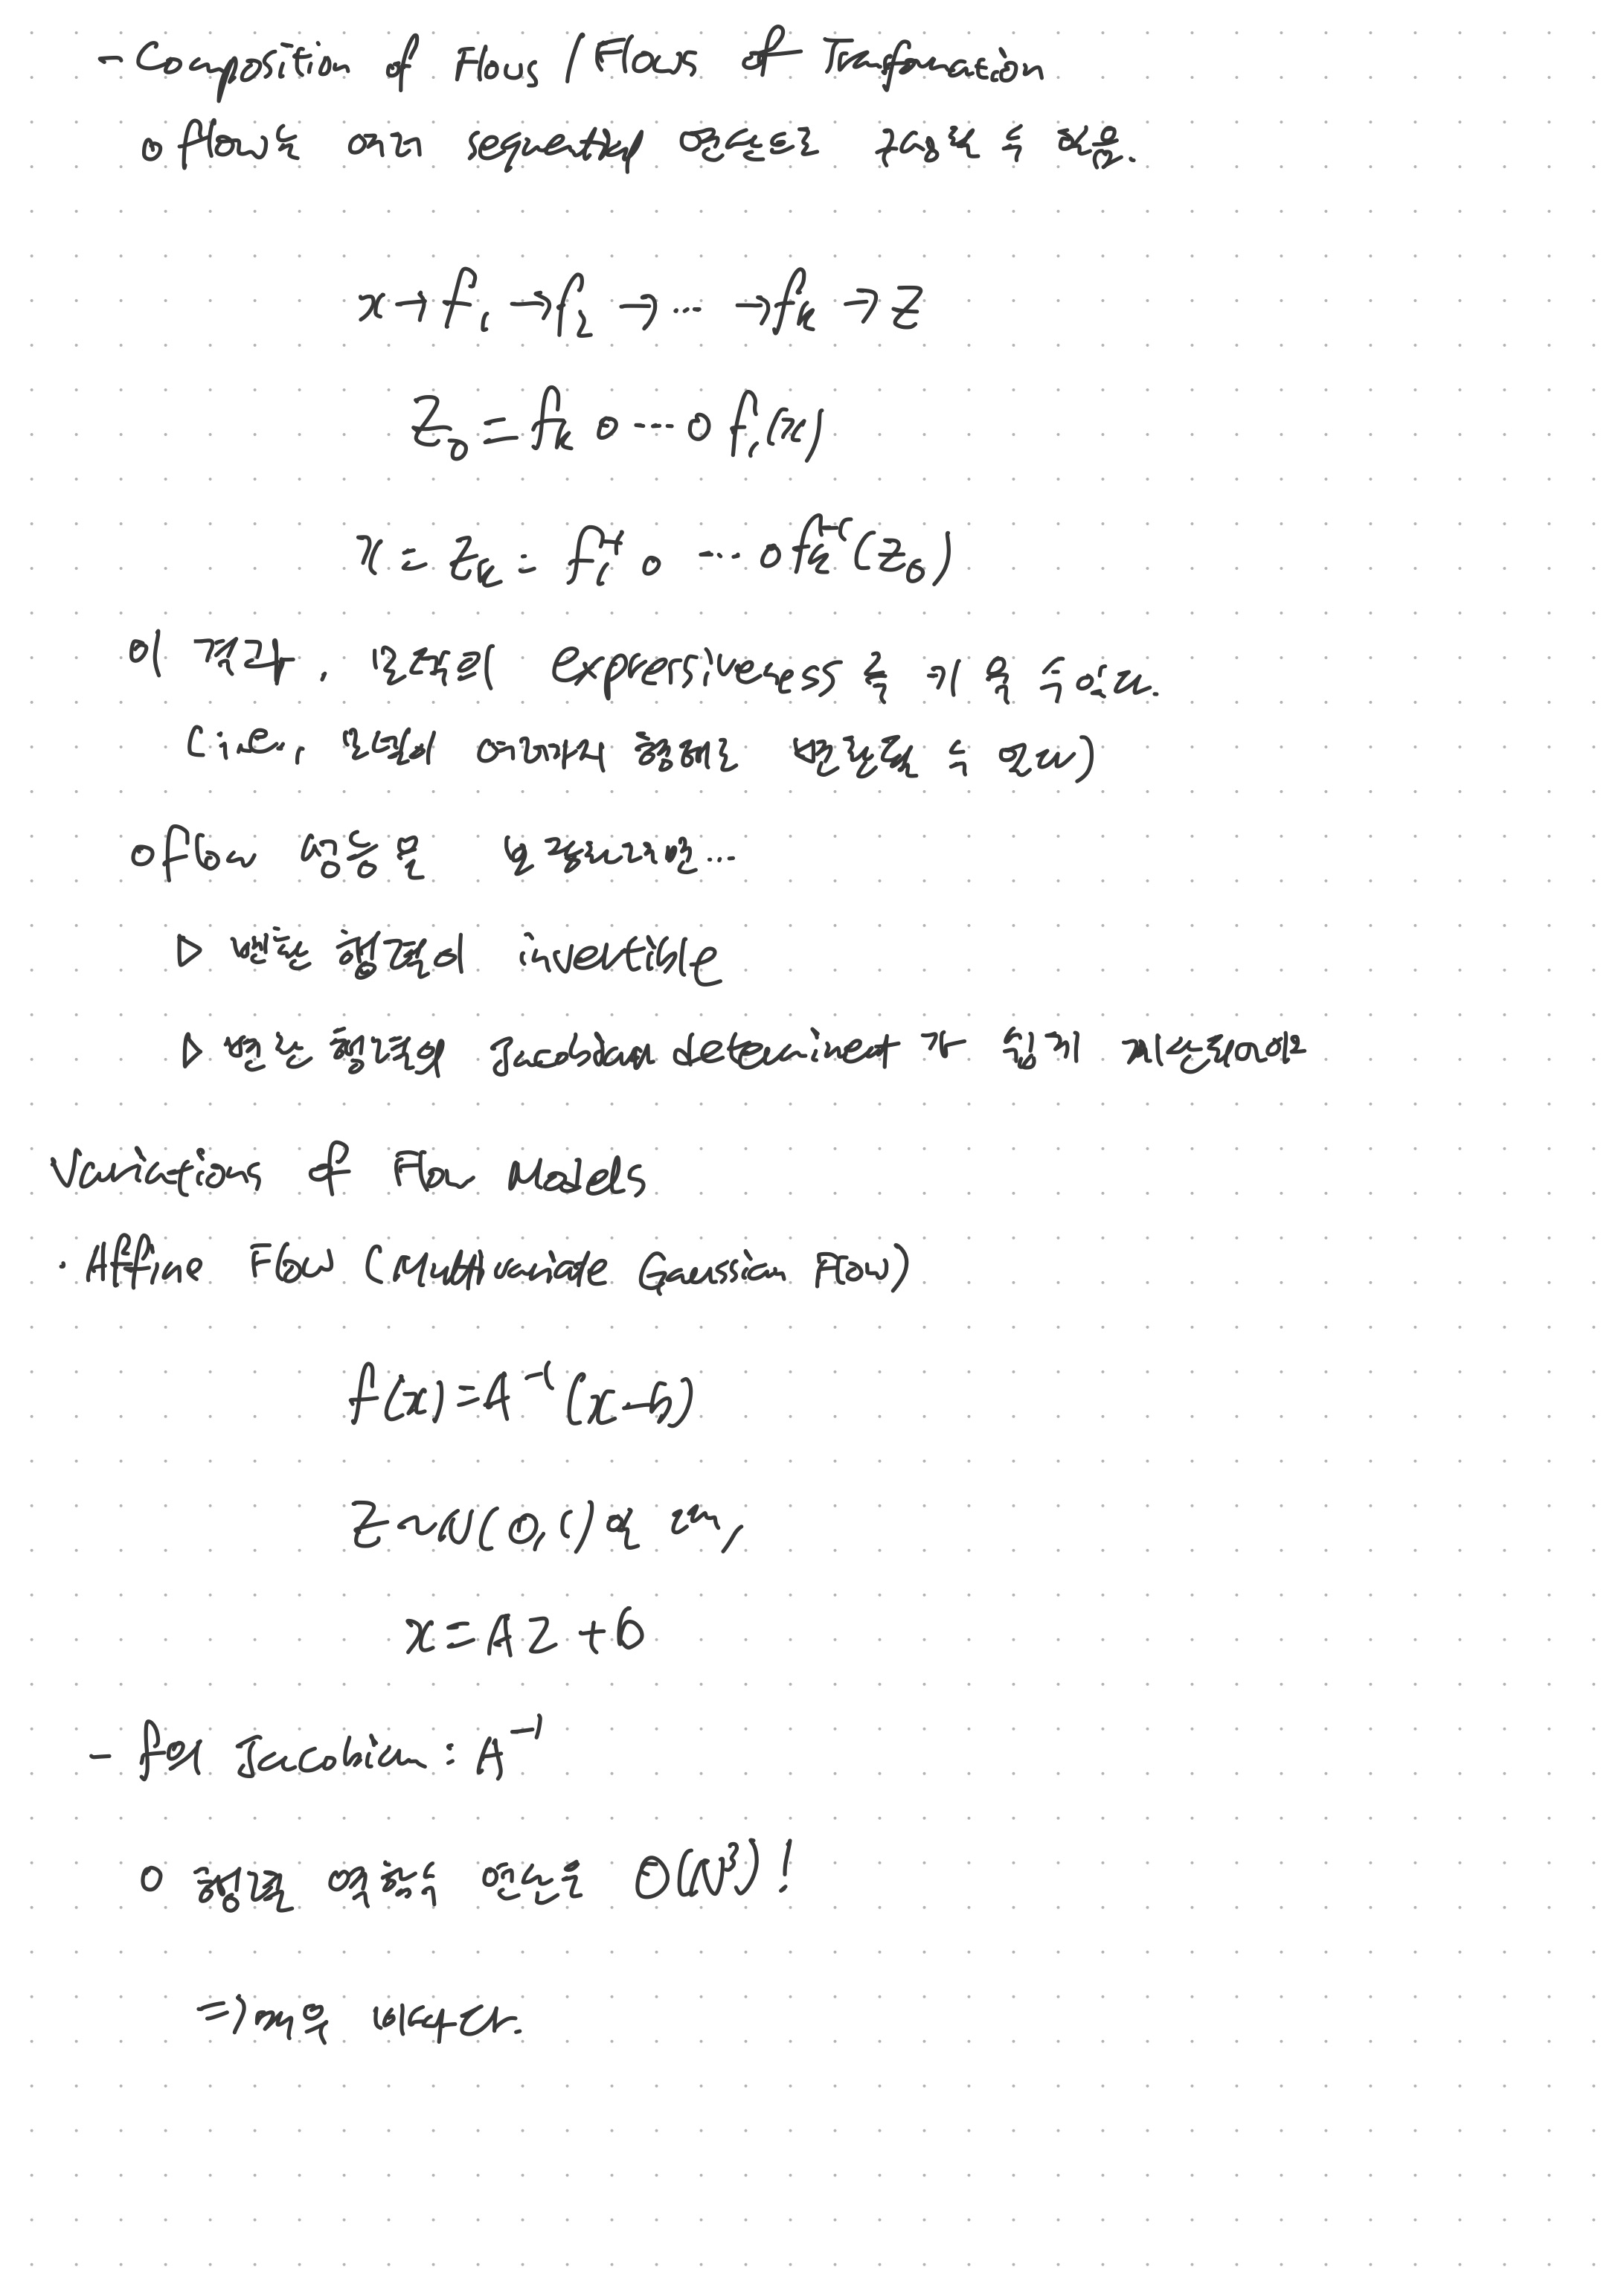 - Composition of Flows / Flows of Transformation
o flow는 여러 sequential 연산으로 구성될 수 있음.
x → f₁ → f₂ → ... → fₖ → z
z₀ = fₖ o ... o f₁(x)
x = zₖ = f₁⁻¹ o ... o fₖ⁻¹(z₀)
이 결과, 모델의 expressiveness를 키울 수 있다.
(i.e., 모델이 여러가지 형태로 변환될 수 있다)
o flow 성능을 발휘하려면...
▷ 변환 행렬이 invertible
▷ 변환 행렬의 Jacobian determinent가 쉽게 계산되어야
Variations of Flow Models
· Affine Flow (Multivariate Gaussian Flow)
f(x) = A⁻¹(x-b)
z ~ N(0,1)일 때,
x = Az + b
- f의 Jacobian : A⁻¹
o 행렬 역함수 연산은 O(N³)!
⇒ 매우 비싸다.